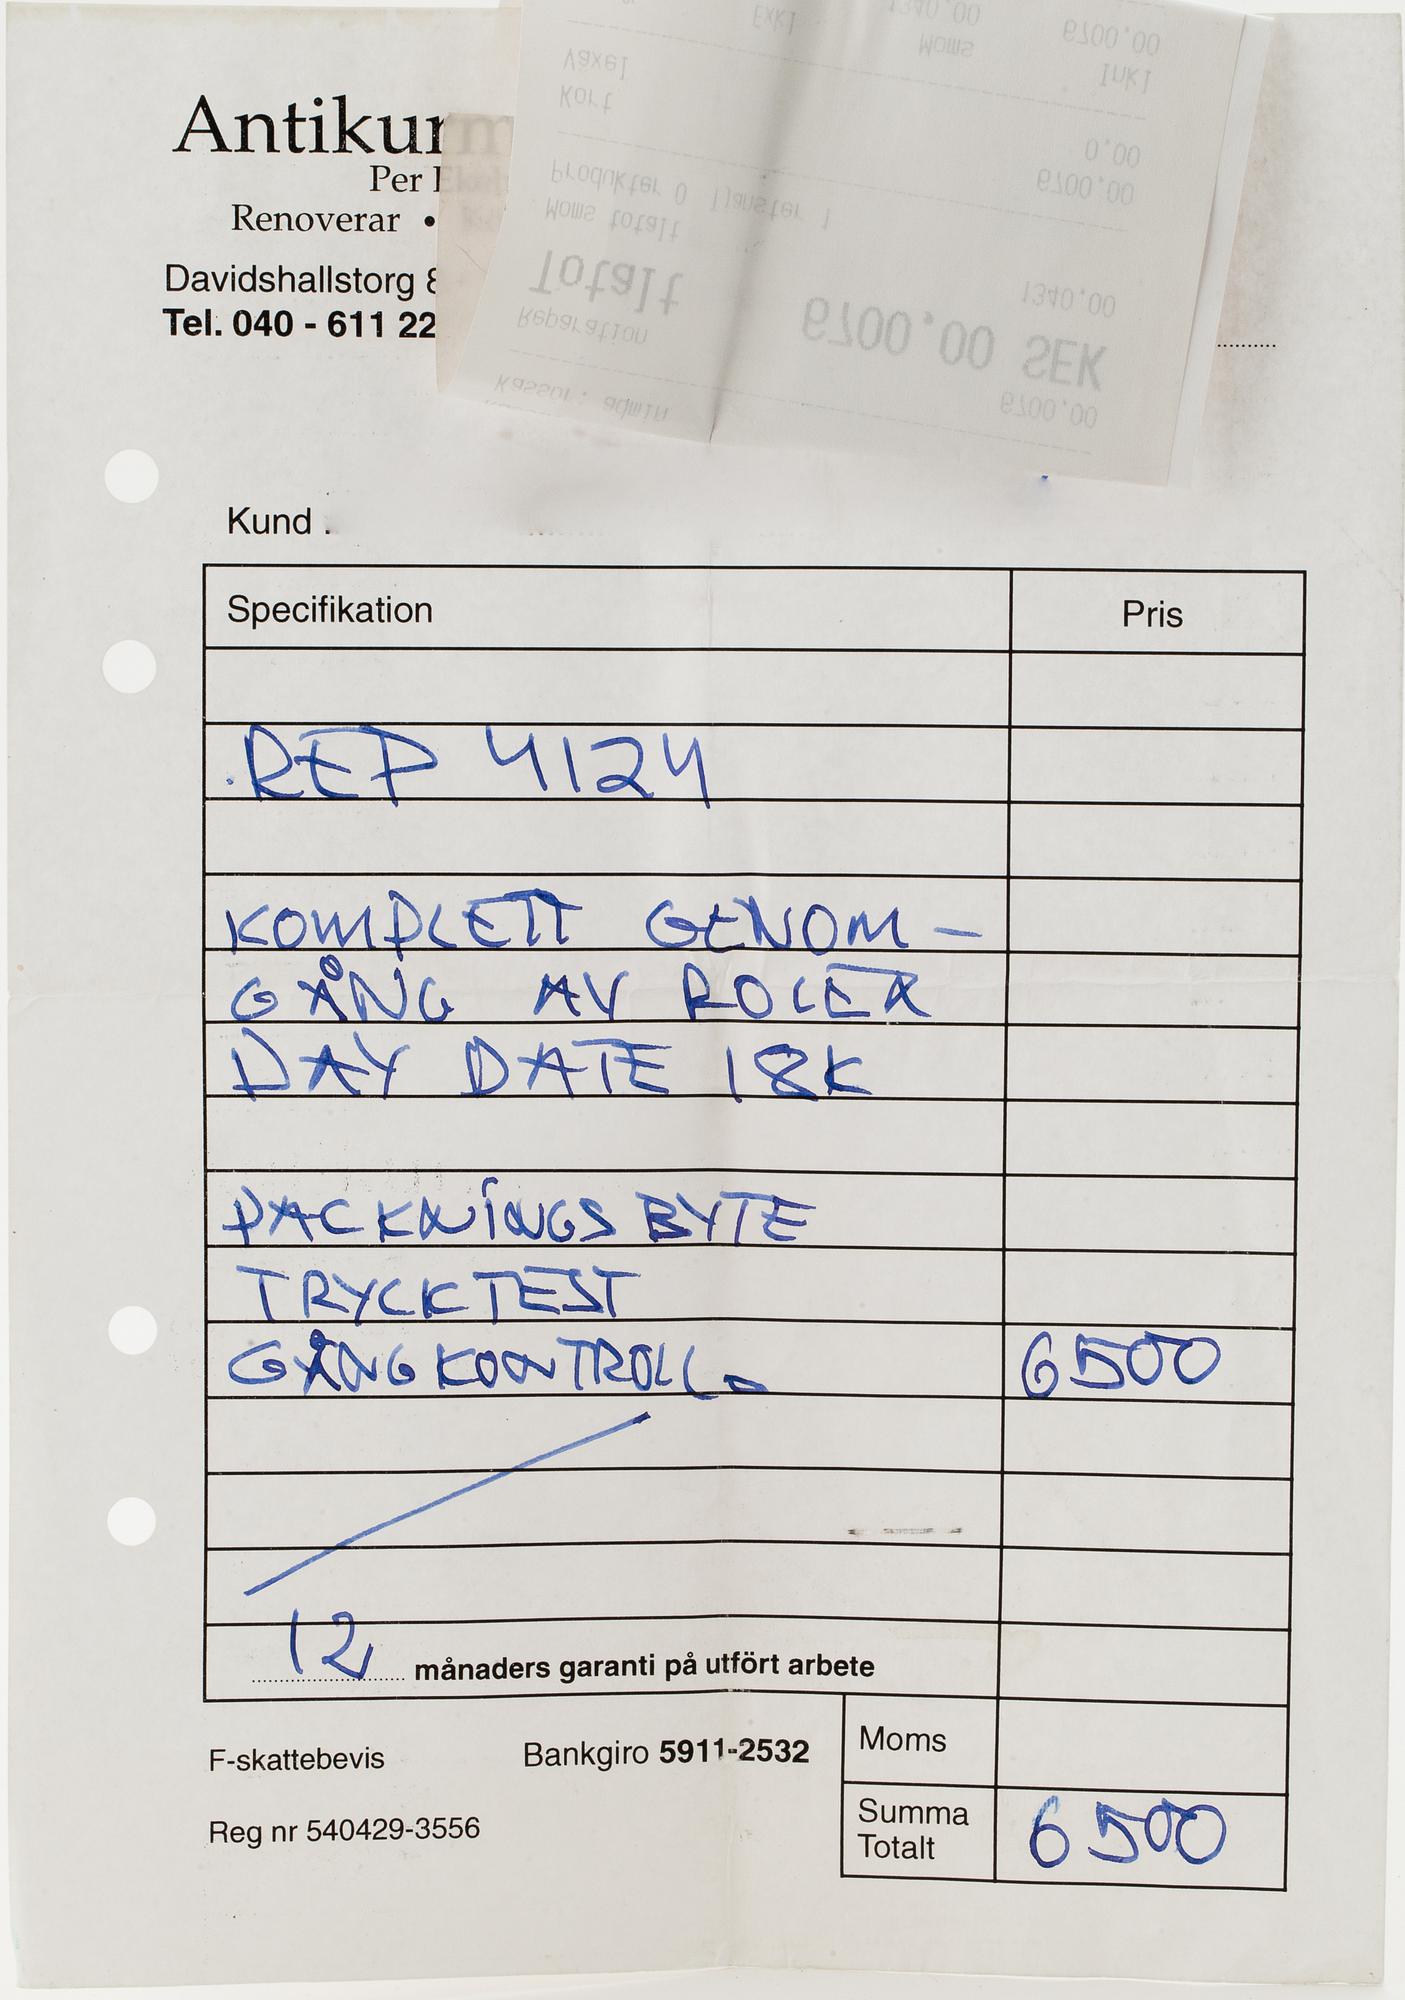 Antikur
Per
Renoverar •
Davidshallstorg 8
Tel. 040 - 611 22
Exkl Moms Inkl
1340.00 6700.00
Växel 0.00
Kort 6700.00
Produkter 0 Tjänster 1
Moms totalt 1340.00
Totalt 6700.00 SEK
Reparation 6700.00
Kassör: admin
Kund .
Specifikation Pris
REP 4124
KOMPLETT GENOM-
GÅNG AV ROLEX
DAY DATE 18K
PACKNINGSBYTE
TRYCKTEST
GÅNGKONTROLL 6500
12 månaders garanti på utfört arbete
F-skattebevis Bankgiro 5911-2532 Moms
Reg nr 540429-3556 Summa
Totalt 6500